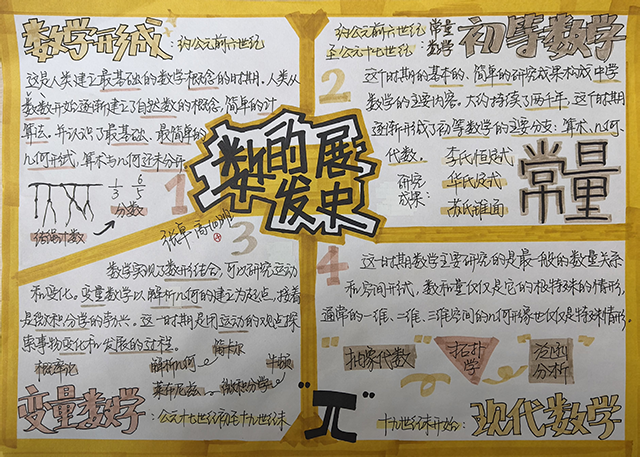 数学形成：约公元前六世纪
这是人类建立最基础的数学概念的时期，人类从
数数开始逐渐建立了自然数的概念，简单的计
算法，并认识了最基础、最简单的
几何形式，算术与几何还未分开
1/3 6/5
分数
结绳计数
1
约公元前六世纪
至公元十七世纪
常量
数学
初等数学
2
这个时期的基本的、简单的研究成果构成中学
数学的主要内容，大约持续了两千年，这个时期
逐渐形成了初等数学的主要分支：算术、几何、
代数．
研究
成果：
李氏恒定式
华氏定式
苏氏锥面
常量
数的发展史
3
数学实现了数形结合，可以研究运动
和变化。变量数学以解析几何的建立为起点，接着
是微积分学的勃兴。这一时期是用运动的观点探
索事物变化和发展的过程。
概率论
解析几何
笛卡尔
莱布尼兹
微积分学
牛顿
变量数学：公元十七世纪初至十九世纪末
4
这一时期数学主要研究的是最一般的数量关系
和空间形式，数和量仅仅是它的极特殊的情形，
通常的一维、二维、三维空间的几何形象也仅仅是特殊情形。
抽象代数
拓扑
学
泛函
分析
"π"
十九世纪末开始：现代数学